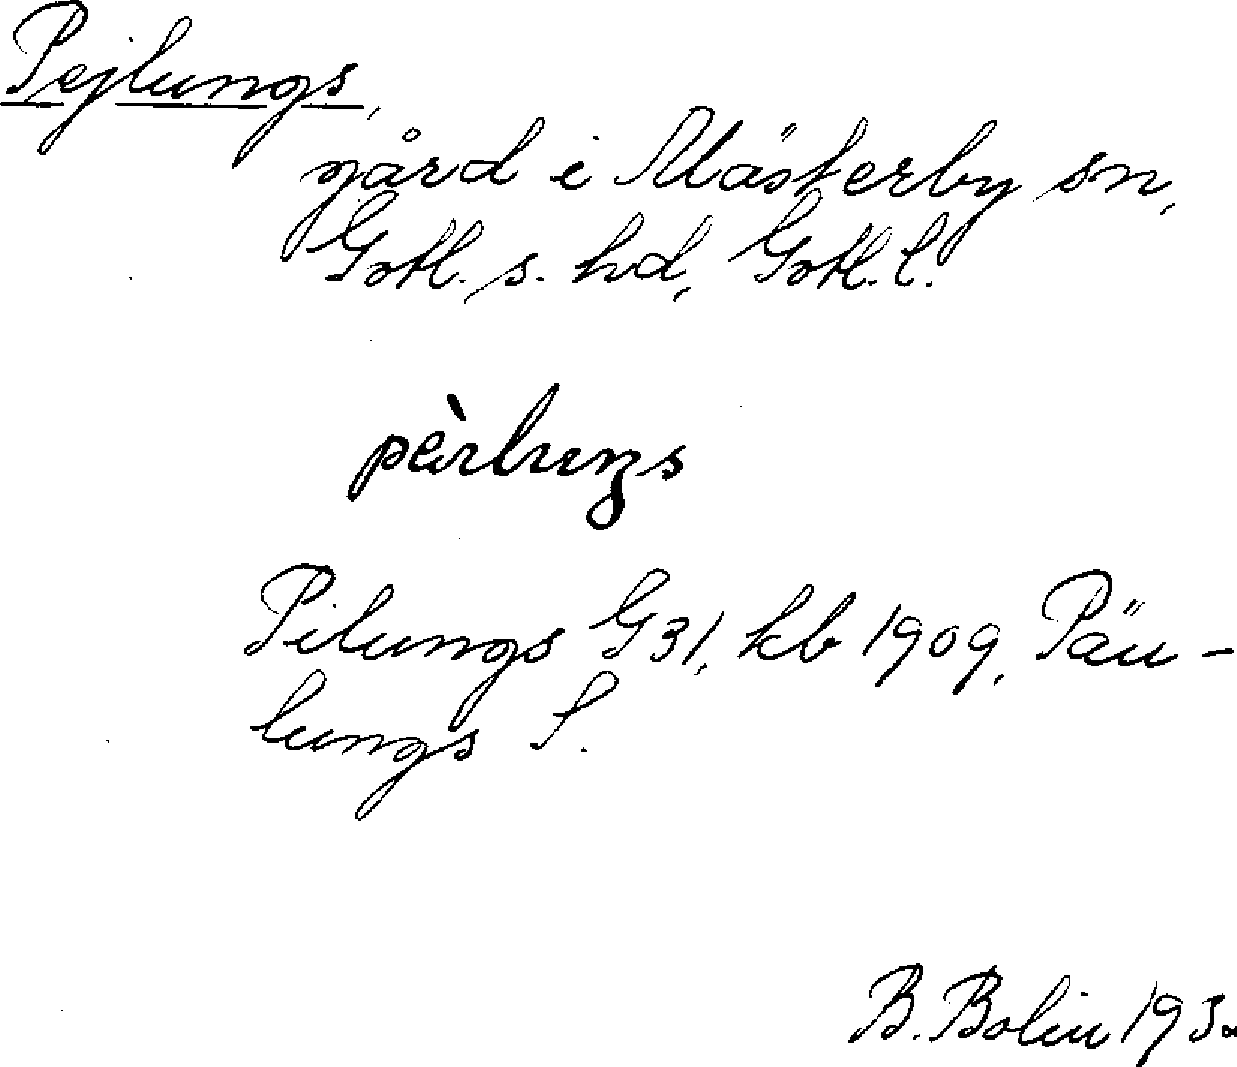 Pejlungs,
gård i Mästerby sn,
Gotl. s. hd, Gotl. l.
Pilungs G31, kb 1909, Päu-
lungs S.
B. Bolin 193